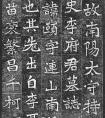 故南陽太守持
史李府君墓誌
諱頊字連山南
也其先出自李
苗裔磐昌千柯